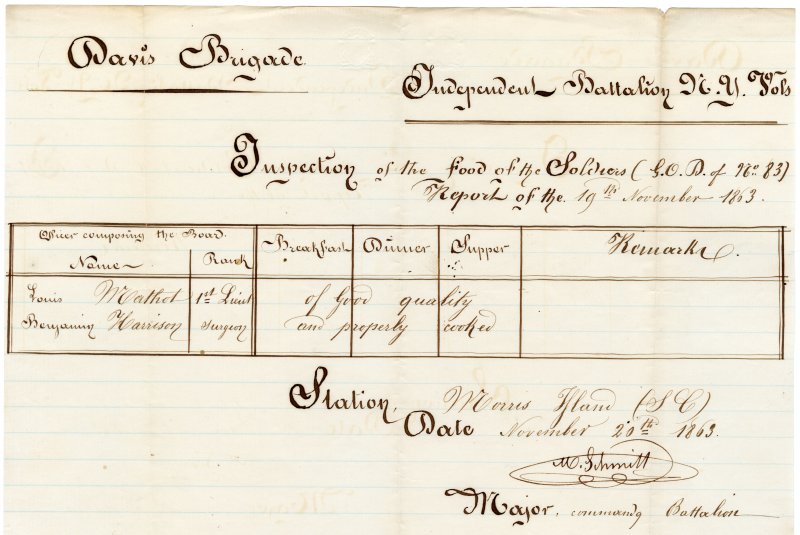 Davis Brigade
Independent Battalion N.Y. Vols
Inspection of the food of the Soldiers (G.O.D. of No. 83)
Report of the 19th November 1863.
Officer composing the Board.
Name Rank Breakfast Dinner Supper Remarks.
Louis Mathot 1st Lieut of Good quality
Benjamin Harrison Surgeon and properly cooked
Station, Morris Island (S C)
Date November 20th 1863.
M. Schmitt
Major, commandg Battalion